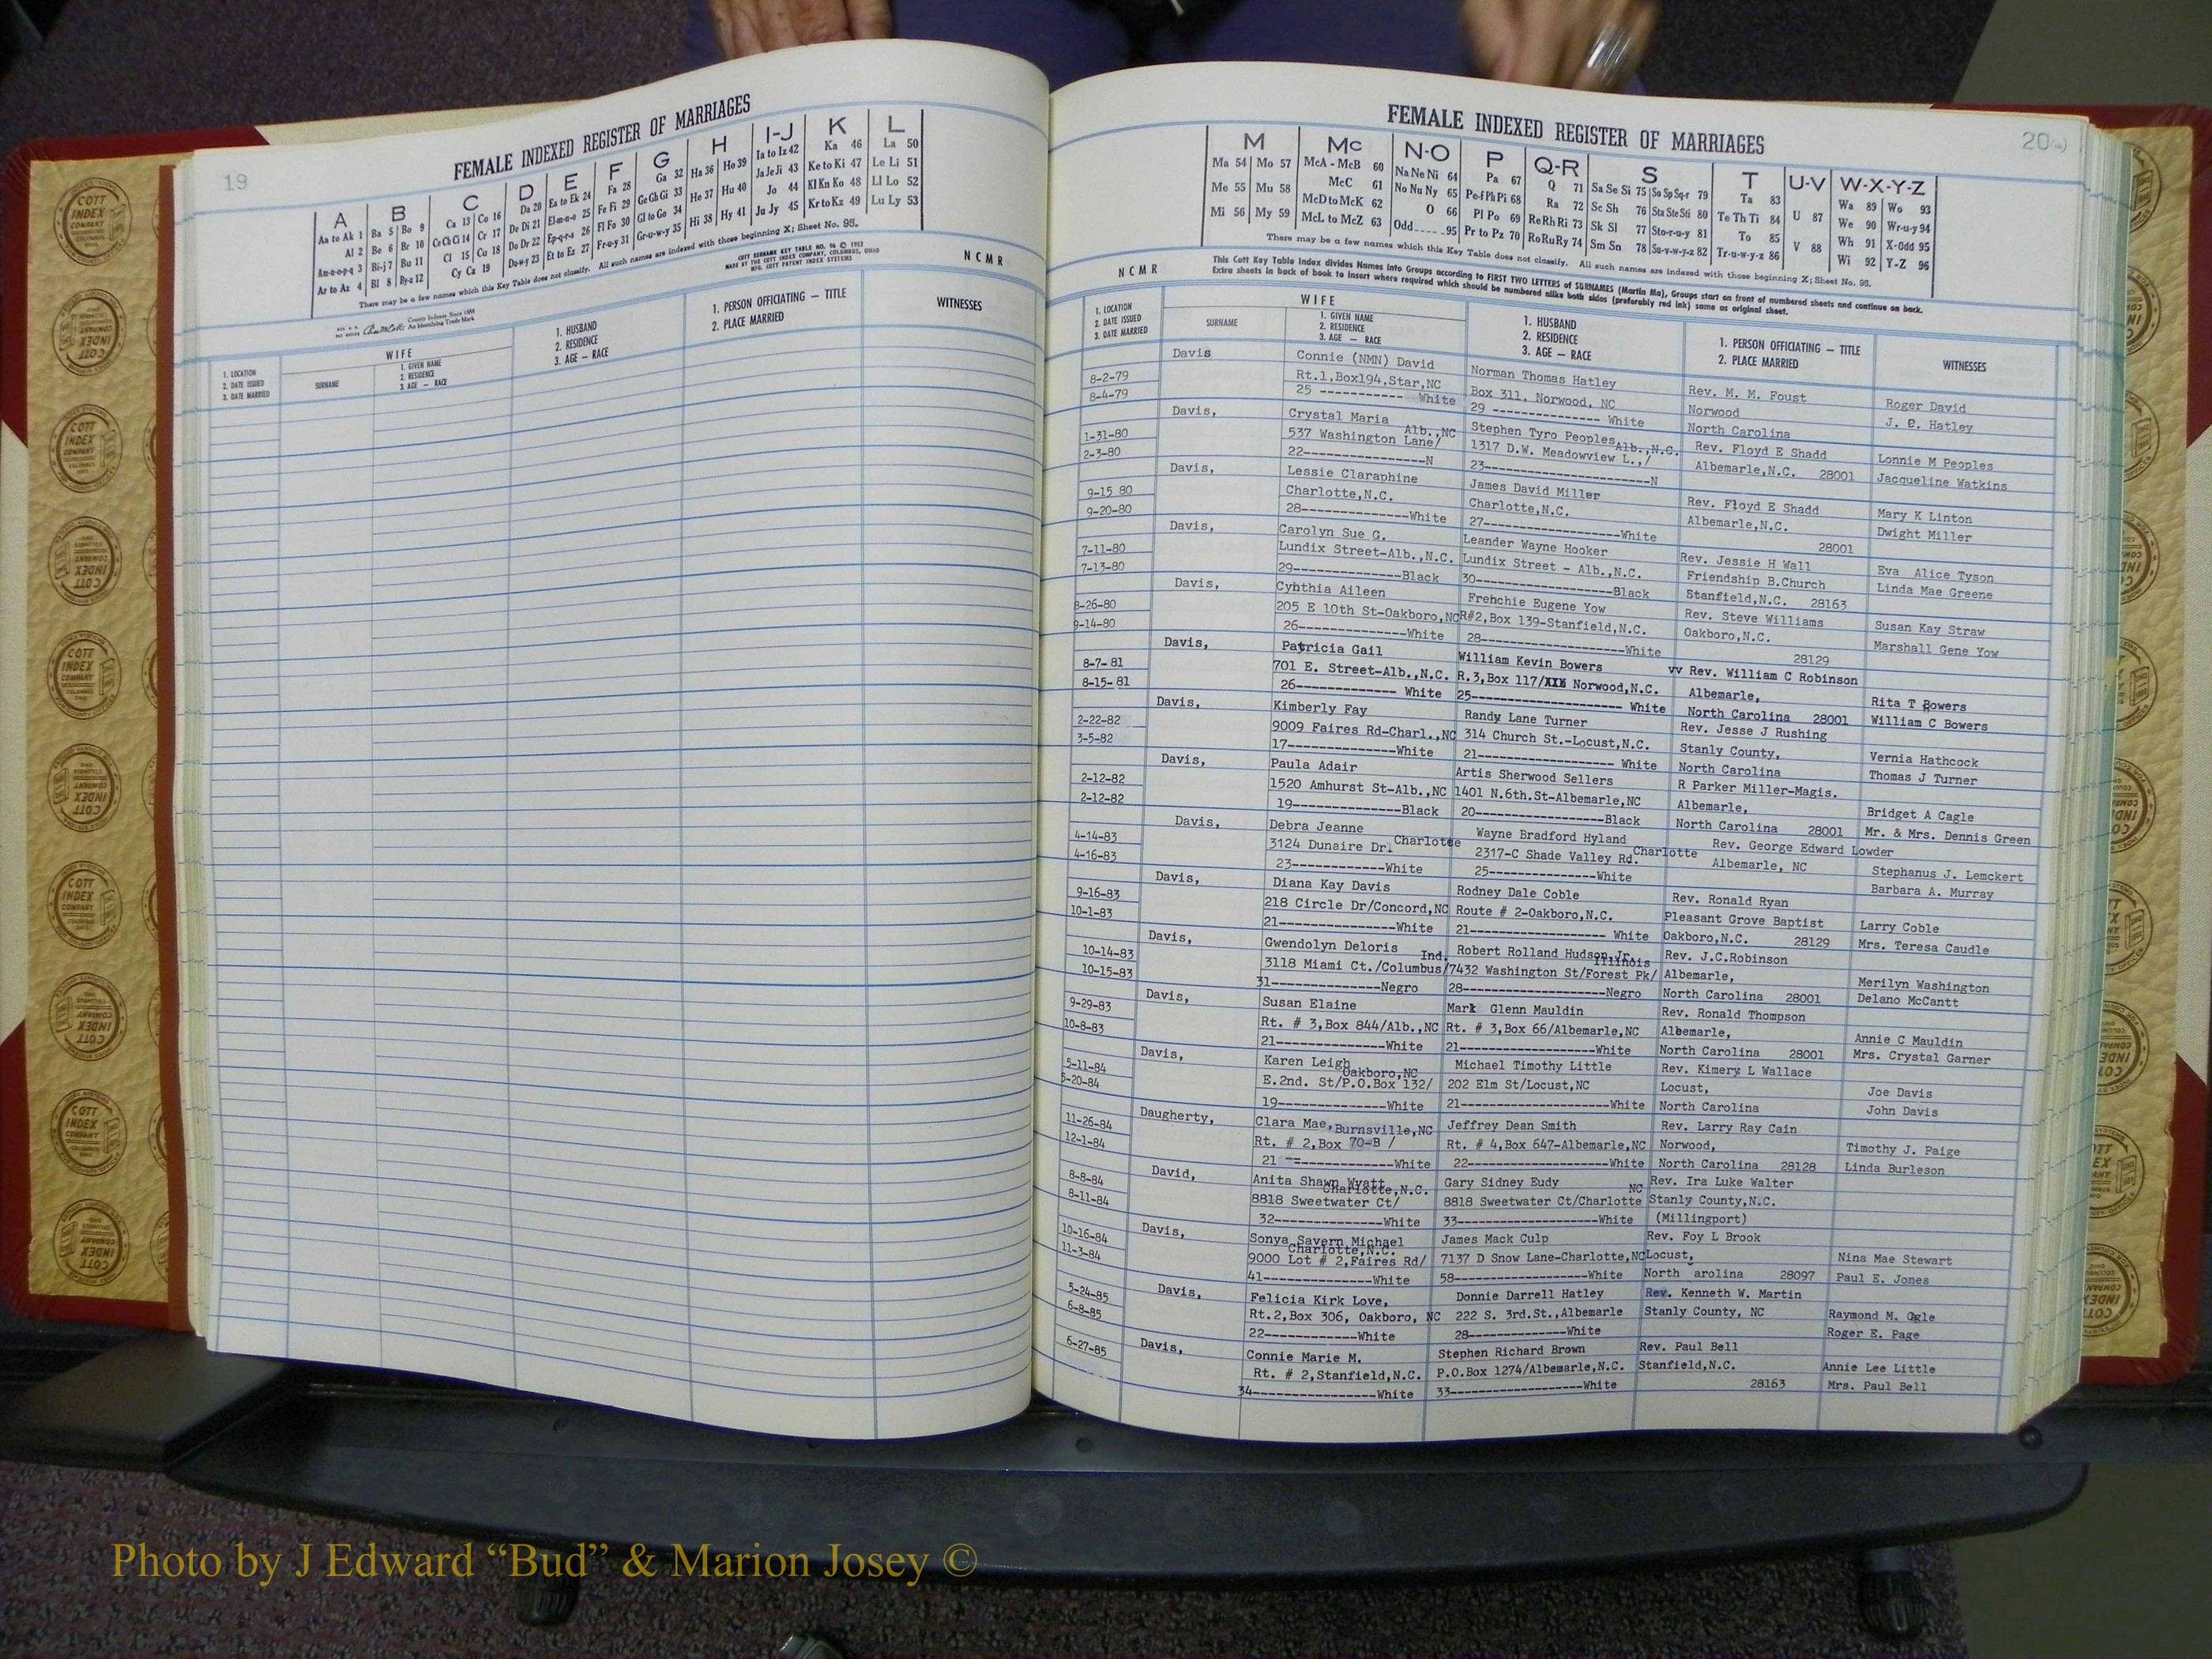 19
FEMALE INDEXED REGISTER OF MARRIAGES
A B C D E F G H I-J K L
Aa to Ak 1 Ba 5 Bo 9 Ca 13 Co 16 Da 20 Ea to Ek 24 Fa 28 Ga 32 Ha 36 Ho 39 Ia to Iz 42 Ka 46 La 50
Al 2 Be 6 Br 10 Ce Ch Ci 14 Cr 17 De Di 21 El-m-n-o 25 Fe Fi 29 Ge Gh Gi 33 He 37 Hu 40 Ja Je Ji 43 Ke to Ki 47 Le Li 51
Am-n-o-p-q 3 Bi-j 7 Bu 11 Cl 15 Cu 18 Do Dr 22 Ep-q-r-s 26 Fl Fo 30 Gl to Go 34 Hi 38 Hy 41 Jo 44 Kl Kn Ko 48 Ll Lo 52
Ar to Az 4 Bl 8 By-z 12 Cy Cz 19 Du-w-y 23 Et to Ez 27 Fr-u-y 31 Gr-u-w-y 35 Ju Jy 45 Kr to Kz 49 Lu Ly 53
There may be a few names which this Key Table does not classify. All such names are indexed with those beginning X; Sheet No. 95.
COTT SURNAME KEY TABLE NO. 96 © 1952
MADE BY THE COTT INDEX COMPANY, COLUMBUS, OHIO
MFG. COTT PATENT INDEX SYSTEMS
NCMR
County Indexes Since 1888
An Identifying Trade Mark
1. LOCATION
2. DATE ISSUED
3. DATE MARRIED
WIFE
SURNAME
1. GIVEN NAME
2. RESIDENCE
3. AGE — RACE
1. HUSBAND
2. RESIDENCE
3. AGE — RACE
1. PERSON OFFICIATING — TITLE
2. PLACE MARRIED
WITNESSES
FEMALE INDEXED REGISTER OF MARRIAGES
20(a)
M Mc N-O P Q-R S T U-V W-X-Y-Z
Ma 54 Mo 57 McA - McB 60 Na Ne Ni 64 Pa 67 Q 71 Sa Se Si 75 So Sp Sq-r 79 Ta 83 U 87 Wa 89 Wo 93
Me 55 Mu 58 McC 61 No Nu Ny 65 Pe-f Ph Pi 68 Ra 72 Sc Sh 76 Sta Ste Sti 80 Te Th Ti 84 V 88 We 90 Wr-u-y 94
Mi 56 My 59 McD to McK 62 O 66 Pl Po 69 Re Rh Ri 73 Sk Sl 77 Sto-r-u-y 81 To 85 Wh 91 X-Odd 95
McL to McZ 63 Odd_____95 Pr to Pz 70 Ro Ru Ry 74 Sm Sn 78 Su-v-w-y-z 82 Tr-u-w-y-z 86 Wi 92 Y-Z 96
There may be a few names which this Key Table does not classify. All such names are indexed with those beginning X; Sheet No. 95.
This Cott Key Table Index divides Names into Groups according to FIRST TWO LETTERS of SURNAMES (Martin Ma), Groups start on front of numbered sheets and continue on back.
Extra sheets in back of book to insert where required which should be numbered alike both sides (preferably red ink) same as original sheet.
NCMR
1. LOCATION
2. DATE ISSUED
3. DATE MARRIED
WIFE
SURNAME
1. GIVEN NAME
2. RESIDENCE
3. AGE — RACE
1. HUSBAND
2. RESIDENCE
3. AGE — RACE
1. PERSON OFFICIATING — TITLE
2. PLACE MARRIED
WITNESSES
Davis Connie (NMN) David Norman Thomas Hatley Rev. M. M. Foust
8-2-79 Rt.1,Box194,Star,NC Box 311, Norwood, NC Norwood Roger David
8-4-79 25 ----------- White 29 ------------- White North Carolina J. C. Hatley
Davis, Crystal Maria Alb.,NC Stephen Tyro Peoples Alb.,N.C. Rev. Floyd E Shadd
1-31-80 537 Washington Lane/ 1317 D.W. Meadowview L.,/ Albemarle,N.C. 28001 Lonnie M Peoples
2-3-80 22----------------N 23---------------------N Jacqueline Watkins
Davis, Lessie Claraphine James David Miller Rev. Floyd E Shadd
9-15 80 Charlotte,N.C. Charlotte,N.C. Albemarle,N.C. Mary K Linton
9-20-80 28--------------White 27-----------------White 28001 Dwight Miller
Davis, Carolyn Sue G. Leander Wayne Hooker Rev. Jessie H Wall
7-11-80 Lundix Street-Alb.,N.C. Lundix Street - Alb.,N.C. Friendship B.Church Eva Alice Tyson
7-13-80 29--------------Black 30-----------------Black Stanfield,N.C. 28163 Linda Mae Greene
Davis, Cynthia Aileen Frehchie Eugene Yow Rev. Steve Williams
8-26-80 205 E 10th St-Oakboro,NC R#2,Box 139-Stanfield,N.C. Oakboro,N.C. Susan Kay Straw
9-14-80 26--------------White 28-----------------White 28129 Marshall Gene Yow
Davis, Patricia Gail William Kevin Bowers vv Rev. William C Robinson
8-7-81 701 E. Street-Alb.,N.C. R.3,Box 117/XXX Norwood,N.C. Albemarle, Rita T Bowers
8-15-81 26------------- White 25------------------ White North Carolina 28001 William C Bowers
Davis, Kimberly Fay Randy Lane Turner Rev. Jesse J Rushing
2-22-82 9009 Faires Rd-Charl.,NC 314 Church St.-Locust,N.C. Stanly County, Vernia Hathcock
3-5-82 17--------------White 21----------------- White North Carolina Thomas J Turner
Davis, Paula Adair Artis Sherwood Sellers R Parker Miller-Magis.
2-12-82 1520 Amhurst St-Alb.,NC 1401 N.6th.St-Albemarle,NC Albemarle, Bridget A Cagle
2-12-82 19--------------Black 20-----------------Black North Carolina 28001 Mr. & Mrs. Dennis Green
Davis, Debra Jeanne Wayne Bradford Hyland Rev. George Edward Lowder
4-14-83 3124 Dunaire Dr. Charlotte 2317-C Shade Valley Rd. Charlotte Albemarle, NC Stephanus J. Lemckert
4-16-83 23------------White 25--------------White Barbara A. Murray
Davis, Diana Kay Davis Rodney Dale Coble Rev. Ronald Ryan
9-16-83 218 Circle Dr/Concord,NC Route # 2-Oakboro,N.C. Pleasant Grove Baptist Larry Coble
10-1-83 21--------------White 21----------------- White Oakboro,N.C. 28129 Mrs. Teresa Caudle
Davis, Gwendolyn Deloris Ind. Robert Rolland Hudson,Jr. Illinois Rev. J.C.Robinson
10-14-83 3118 Miami Ct./Columbus/ 7432 Washington St/Forest Pk/ Albemarle, Merilyn Washington
10-15-83 31--------------Negro 28-----------------Negro North Carolina 28001 Delano McCantt
Davis, Susan Elaine Mark Glenn Mauldin Rev. Ronald Thompson
9-29-83 Rt. # 3,Box 844/Alb.,NC Rt. # 3,Box 66/Albemarle,NC Albemarle, Annie C Mauldin
10-8-83 21--------------White 21-----------------White North Carolina 28001 Mrs. Crystal Garner
Davis, Karen Leigh Oakboro,NC Michael Timothy Little Rev. Kimery L Wallace
5-11-84 E.2nd. St/P.O.Box 132/ 202 Elm St/Locust,NC Locust, Joe Davis
5-20-84 19--------------White 21------------------White North Carolina John Davis
Daugherty, Clara Mae, Burnsville,NC Jeffrey Dean Smith Rev. Larry Ray Cain
11-26-84 Rt. # 2,Box 70-B / Rt. # 4,Box 647-Albemarle,NC Norwood, Timothy J. Paige
12-1-84 21 --------------White 22-----------------White North Carolina 28128 Linda Burleson
David, Anita Shawn Wyatt Charlotte,N.C. Gary Sidney Eudy NC Rev. Ira Luke Walter
8-8-84 8818 Sweetwater Ct/ 8818 Sweetwater Ct/Charlotte Stanly County,N.C.
8-11-84 32--------------White 33-----------------White (Millingport)
Davis, Sonya Savern Michael Charlotte,N.C. James Mack Culp Rev. Foy L Brook
10-16-84 9000 Lot # 2,Faires Rd/ 7137 D Snow Lane-Charlotte,NC Locust, Nina Mae Stewart
11-3-84 41--------------White 58-----------------White North arolina 28097 Paul E. Jones
Davis, Felicia Kirk Love, Donnie Darrell Hatley Rev. Kenneth W. Martin
5-24-85 Rt.2,Box 306, Oakboro, NC 222 S. 3rd.St.,Albemarle Stanly County, NC Raymond M. Ogle
6-8-85 22------------White 28-------------White Roger E. Page
Davis, Connie Marie M. Stephen Richard Brown Rev. Paul Bell
6-27-85 Rt. # 2,Stanfield,N.C. P.O.Box 1274/Albemarle,N.C. Stanfield,N.C. Annie Lee Little
34----------------White 33-----------------White 28163 Mrs. Paul Bell
Photo by J Edward “Bud” & Marion Josey ©